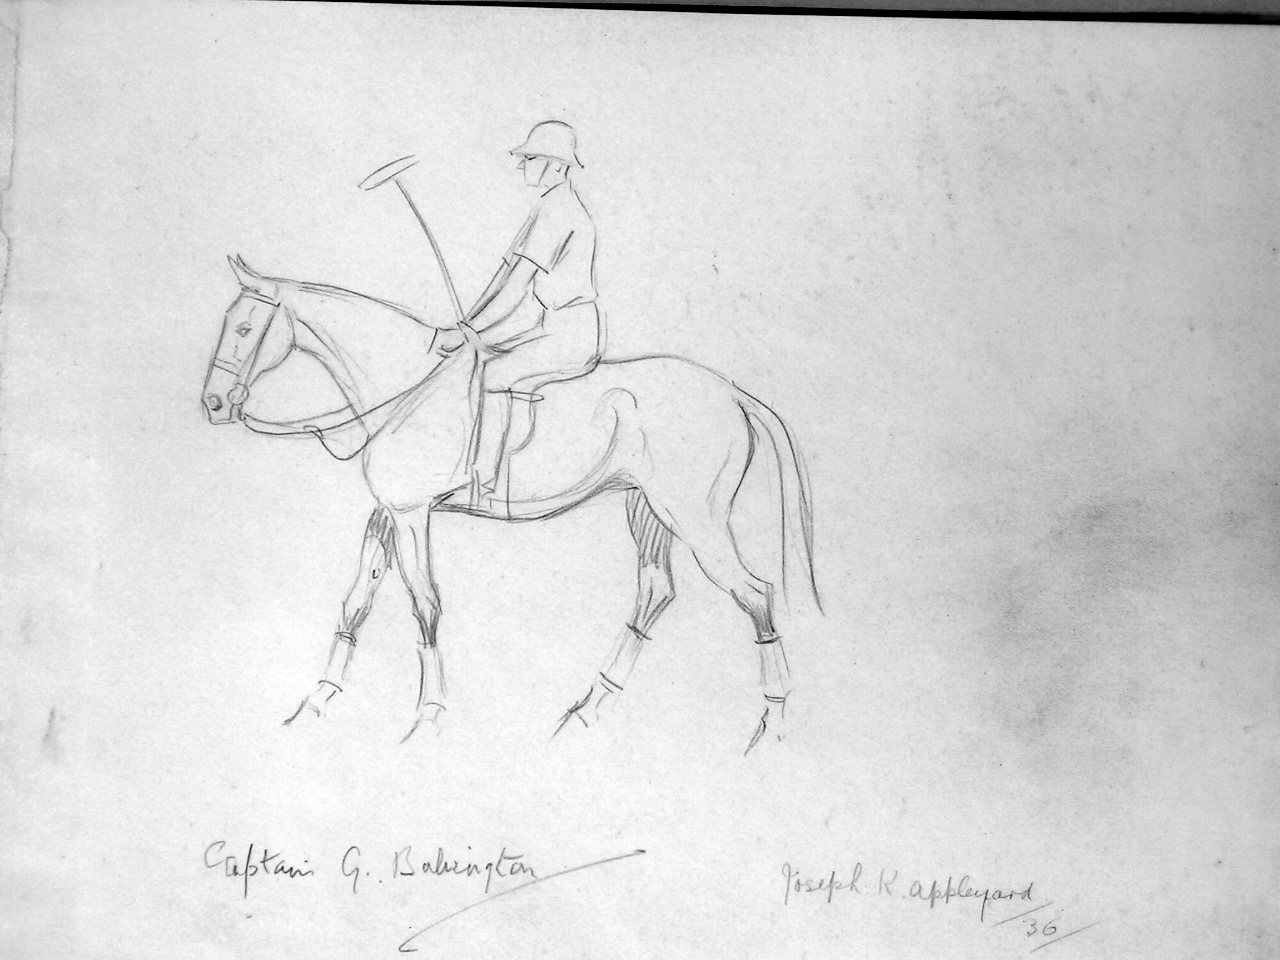 Captain G. Babington
Joseph K. Appleyard
36